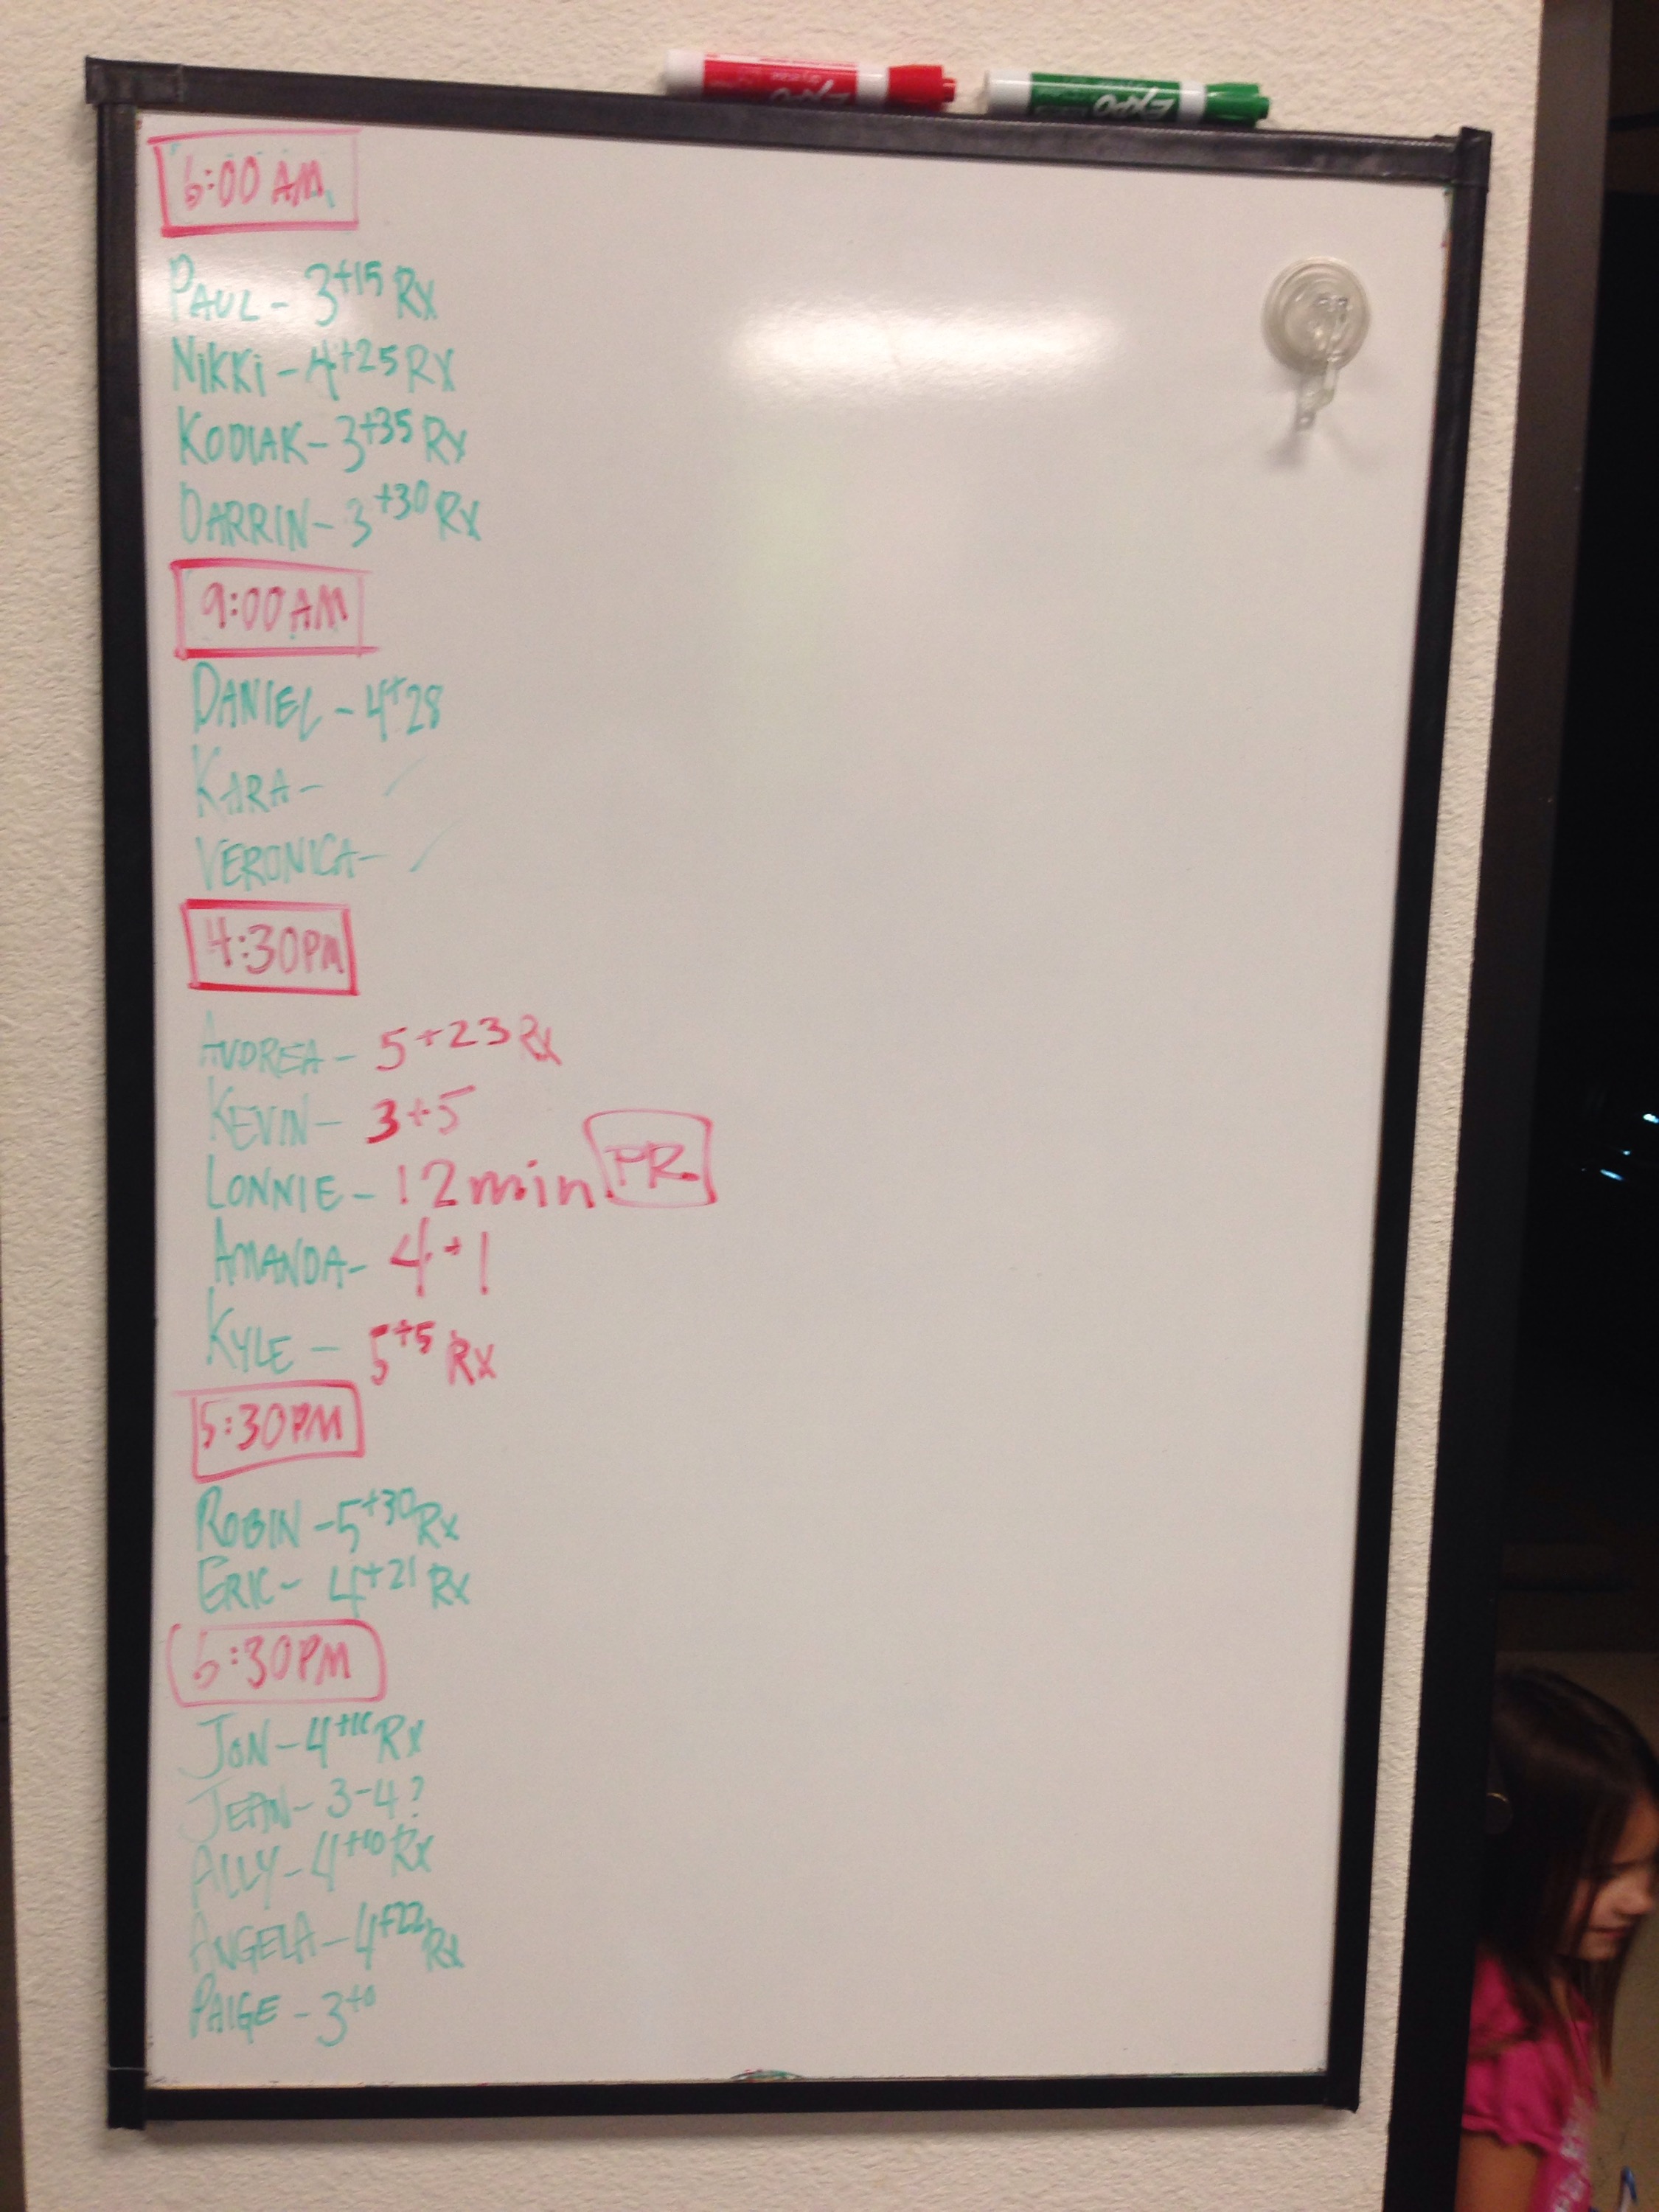 EXPO
EXPO
6:00 AM
PAUL - 3+15 Rx
NIKKI - 4+25 RX
KODIAK - 3+35 Rx
DARRIN - 3+30 Rx
9:00 AM
DANIEL - 4+28
KARA - ✓
VERONICA - ✓
4:30 PM
ANDREA - 5+23 Rx
KEVIN - 3+5
LONNIE - 12 min. PR.
AMANDA - 4+1
KYLE - 5+5 Rx
5:30 PM
ROBIN - 5+30 Rx
ERIC - 4+21 Rx
6:30 PM
JON - 4 Rx
JEAN - 3-4?
ALLY - 4+10 Rx
ANGELA - 4+22 Rx
PAIGE - 3+0